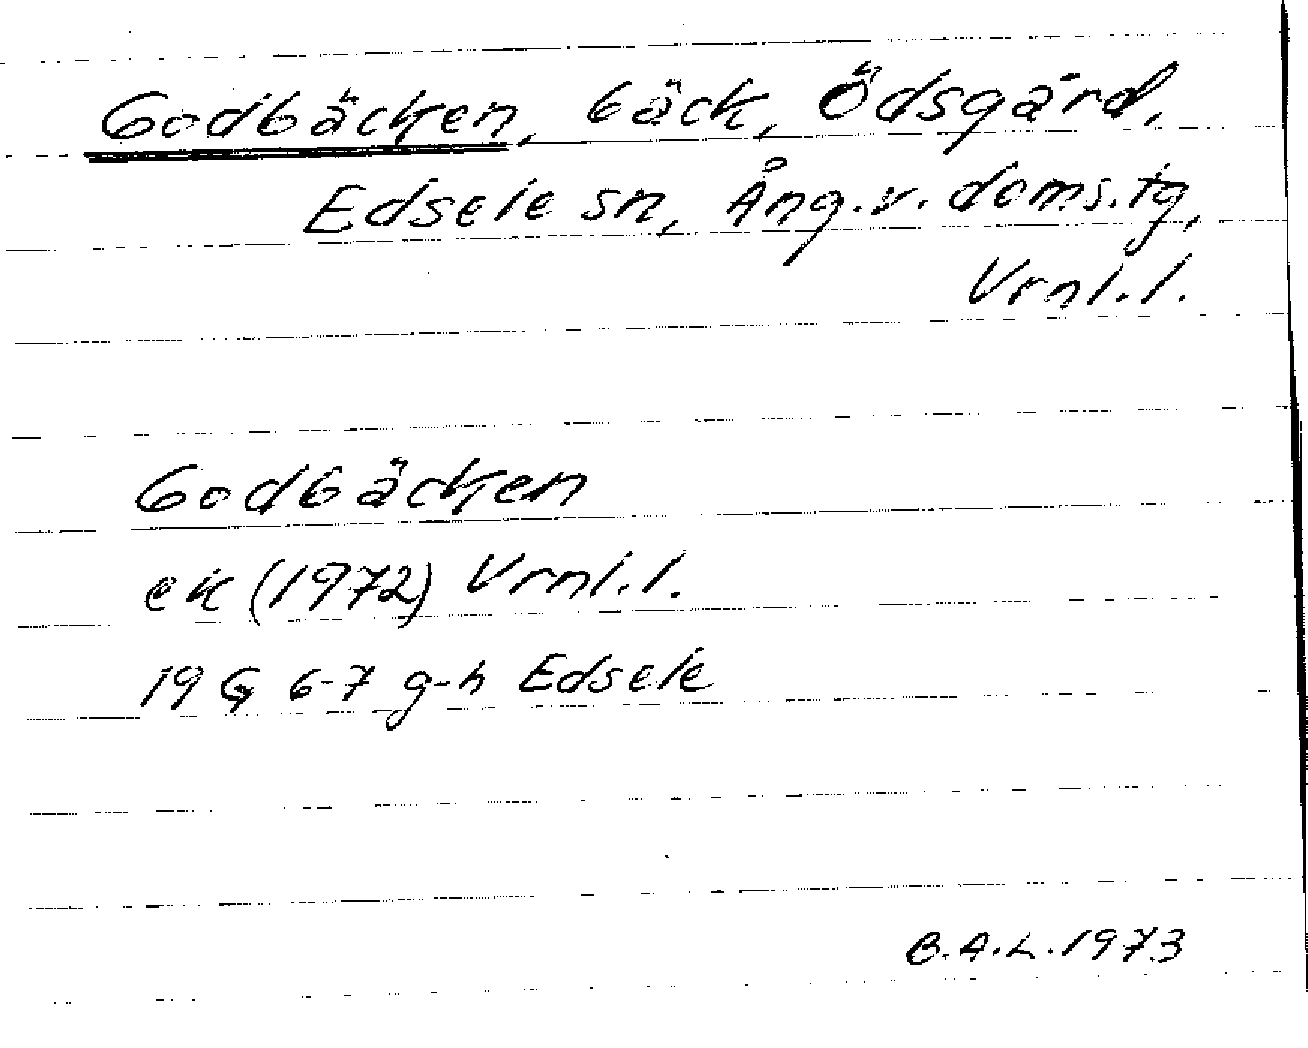 Godbäcken, bäck, Ödsgård,
Edsele sn, Ång.v. doms.tg,
Vrnl.l.
Godbäcken
ek (1972) Vrnl.l.
19 G 6-7 g-h Edsele
B.A.L. 1973